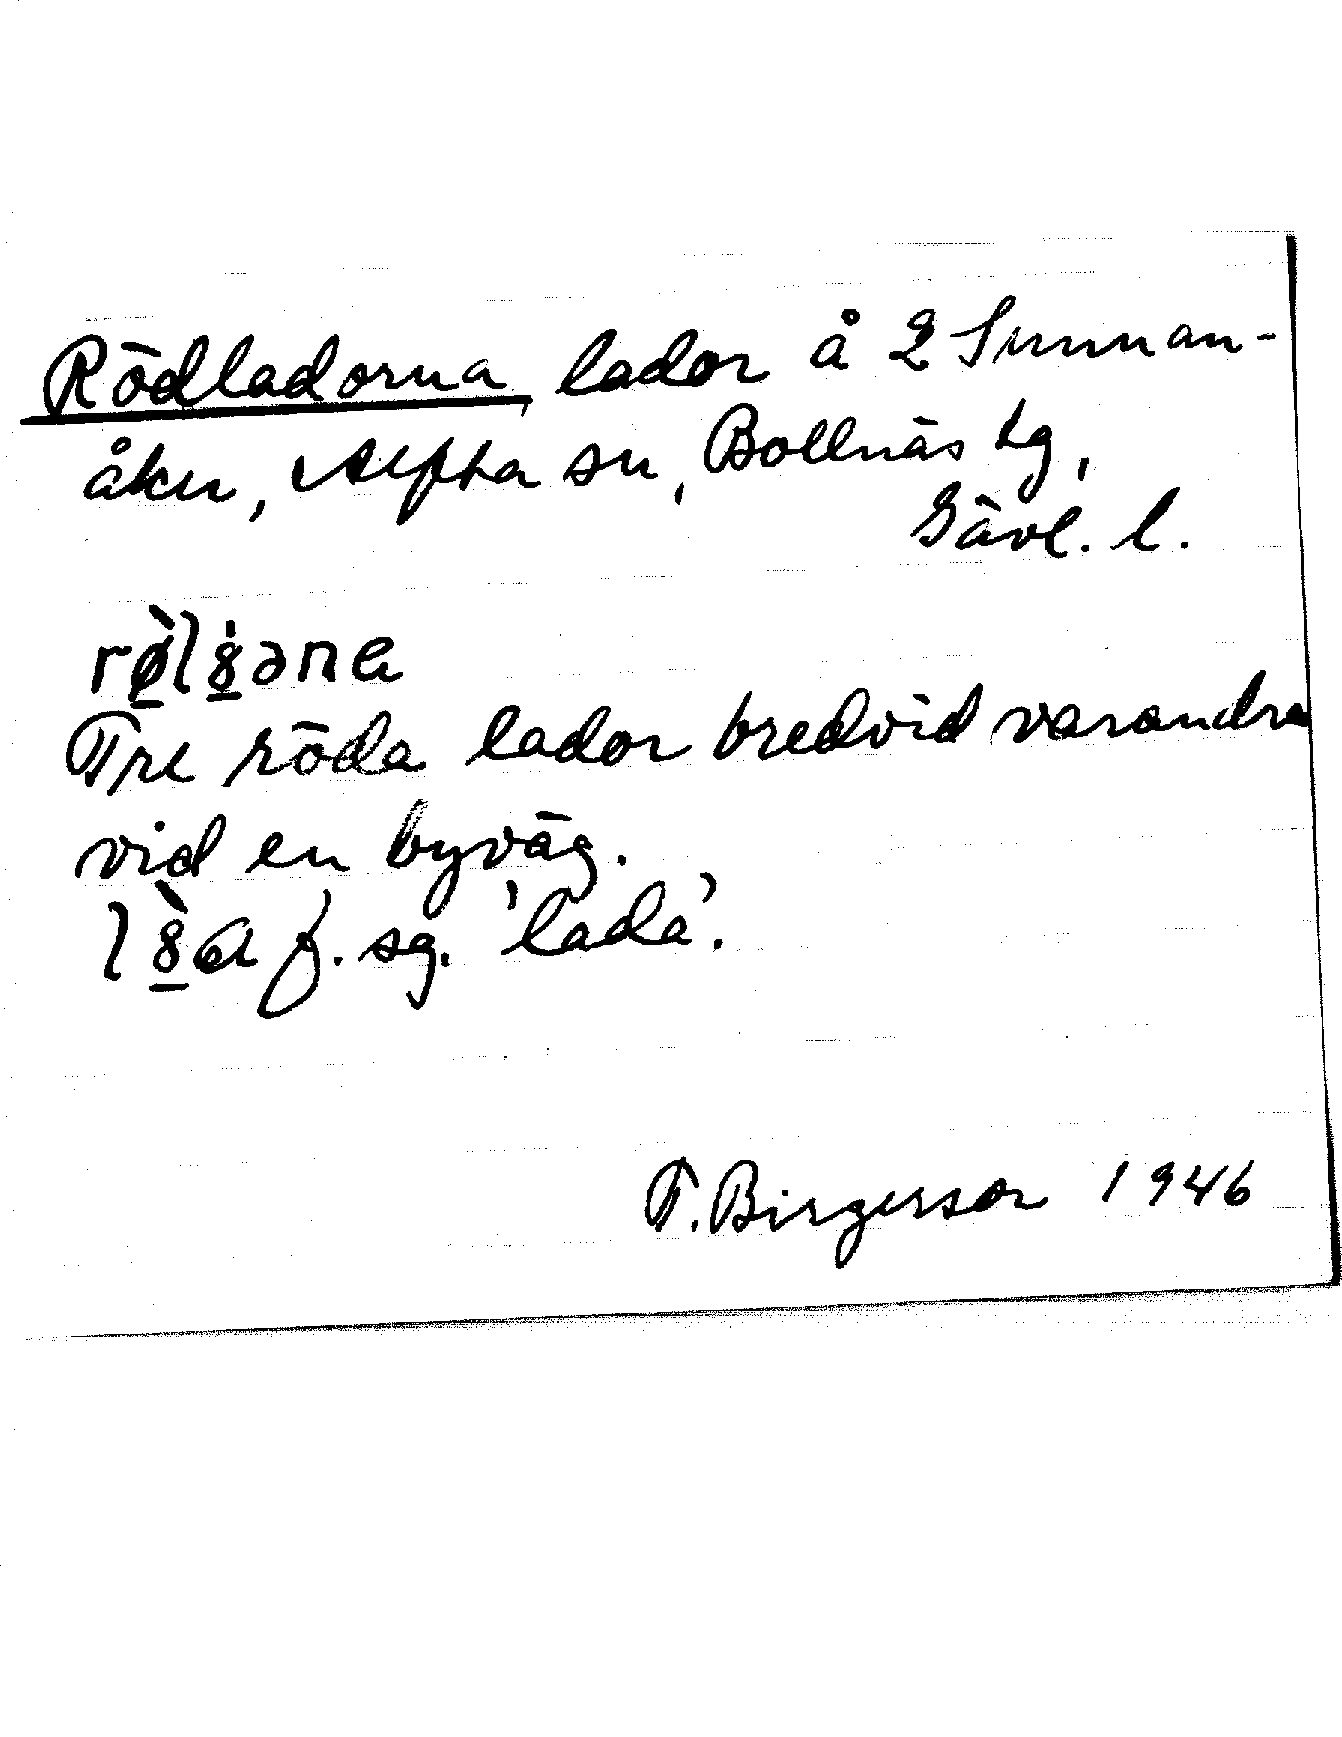 Rödladorna, lador å 2 Sunnan-
åker, Alfta sn, Bollnäs tg,
Gävl. l.
rø̠̀l8̠əna
Tre röda lador bredvid varandra
vid en byväg.
l8̠̀a f. sg. 'lada'.
F. Birgerson 1946